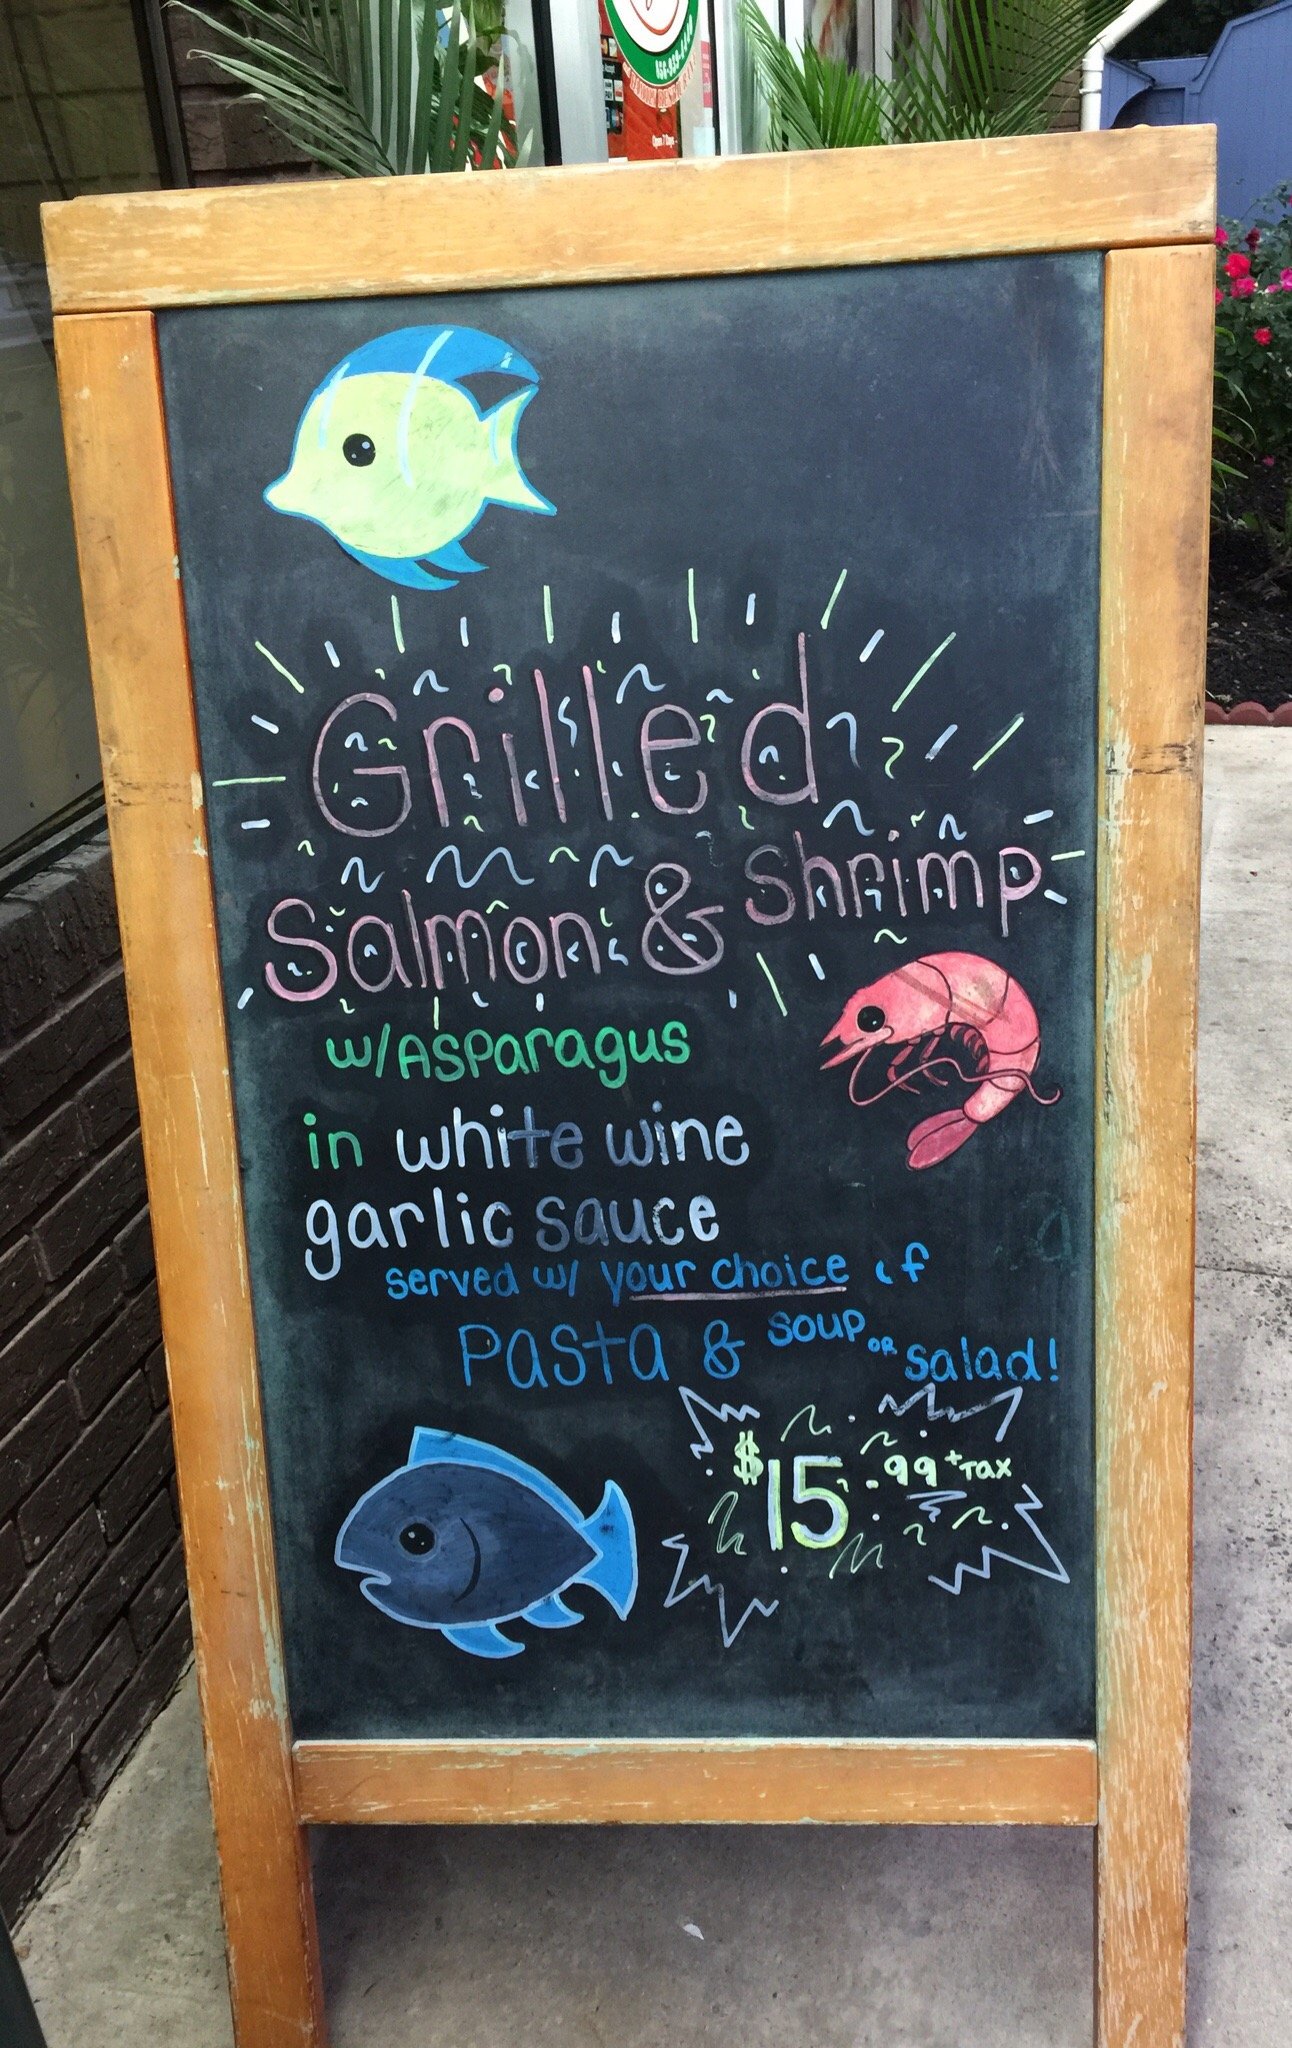 Open 7 Days
Grilled
Salmon & Shrimp
w/Asparagus
in white wine
garlic sauce
served w/ your choice of
Pasta & soup or salad!
$15.99 + Tax